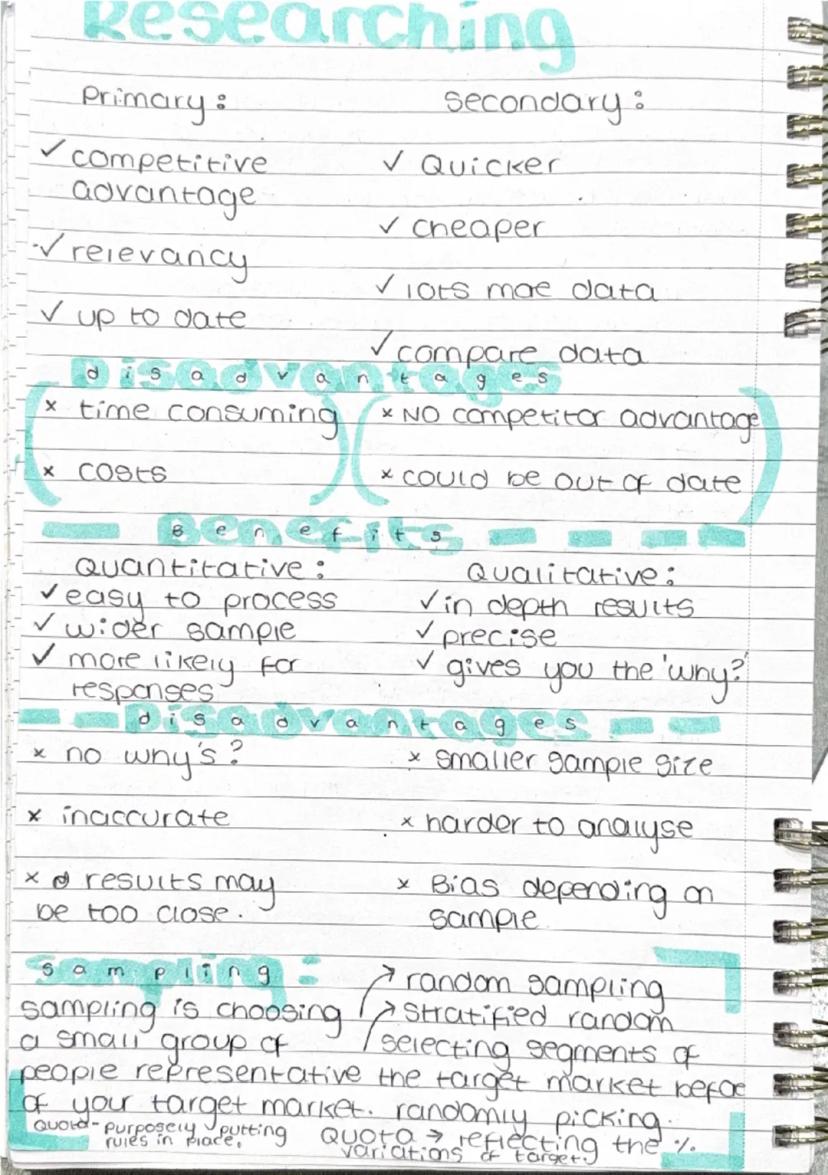 Researching
Primary:
✓ competitive
advantage
✓ relevancy
✓ up to date
Secondary:
✓ Quicker
✓ cheaper
✓ lots moe data
✓ compare data
Disadvantages
× time consuming
× costs
× NO competitor advantage
× could be out of date
Benefits
Quantitative:
✓ easy to process
✓ wider sample
✓ more likely for
responses
Qualitative:
✓ in depth results
✓ precise
✓ gives you the 'why?'
disadvantages
× no why's?
× inaccurate
× results may
be too close.
× smaller sample size
× harder to analyse
× Bias depending on
sample
sampling:
sampling is choosing
a small group of
people representative
of your target market.
→ random sampling
→ stratified random
selecting segments of
the target market befoe
randomly picking.
Quota - purposely putting
rules in place.
Quota → reflecting the %
variations of target